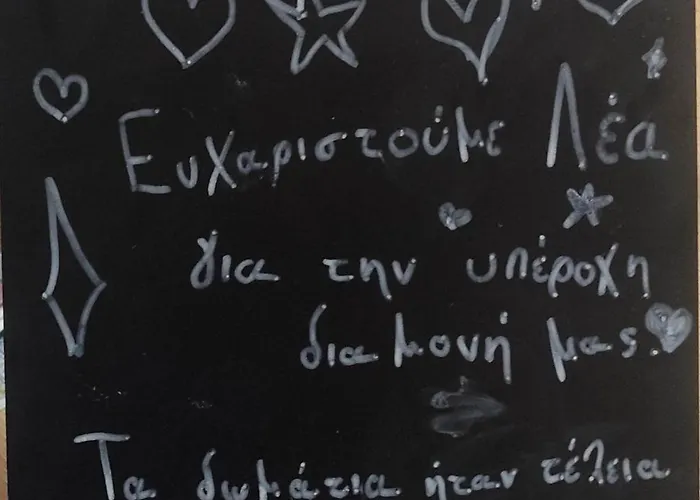 Ευχαριστούμε Λέα
για την υπέροχη
διαμονή μας.
Τα δωμάτια ήταν τέλεια